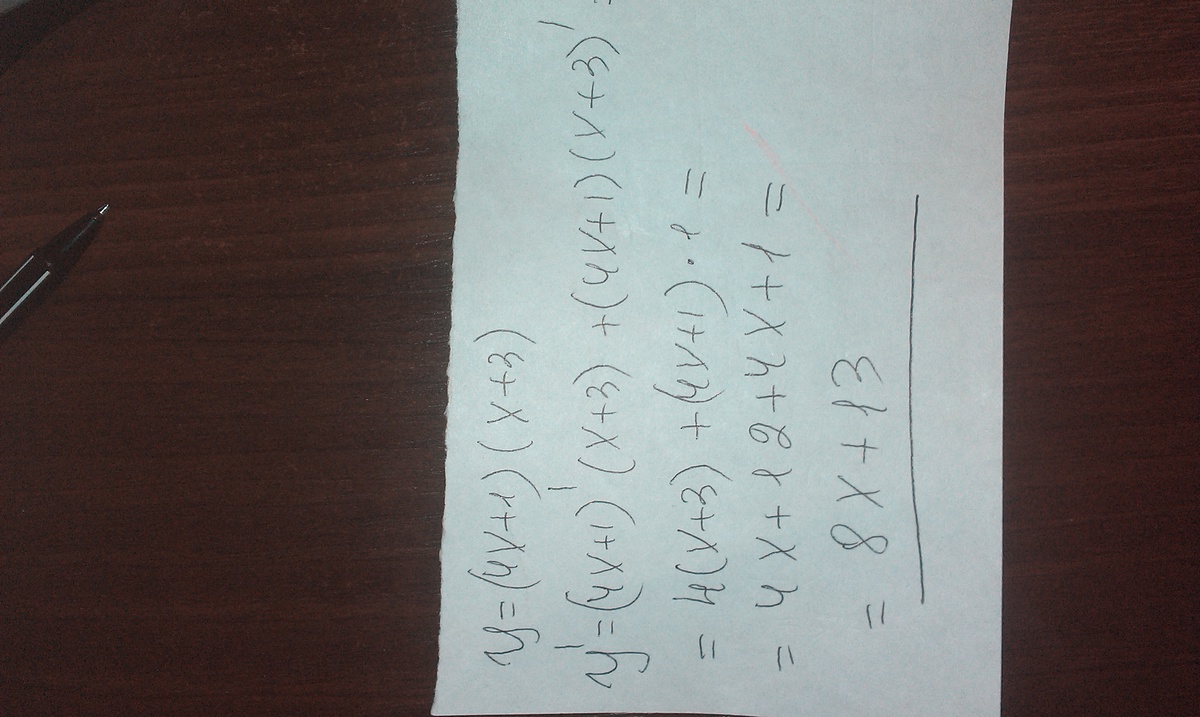 y=(4x+1)(x+3)
y'=(4x+1)'(x+3)+(4x+1)(x+3)'=
=4(x+3)+(4x+1)·1=
=4x+12+4x+1=
=8x+13